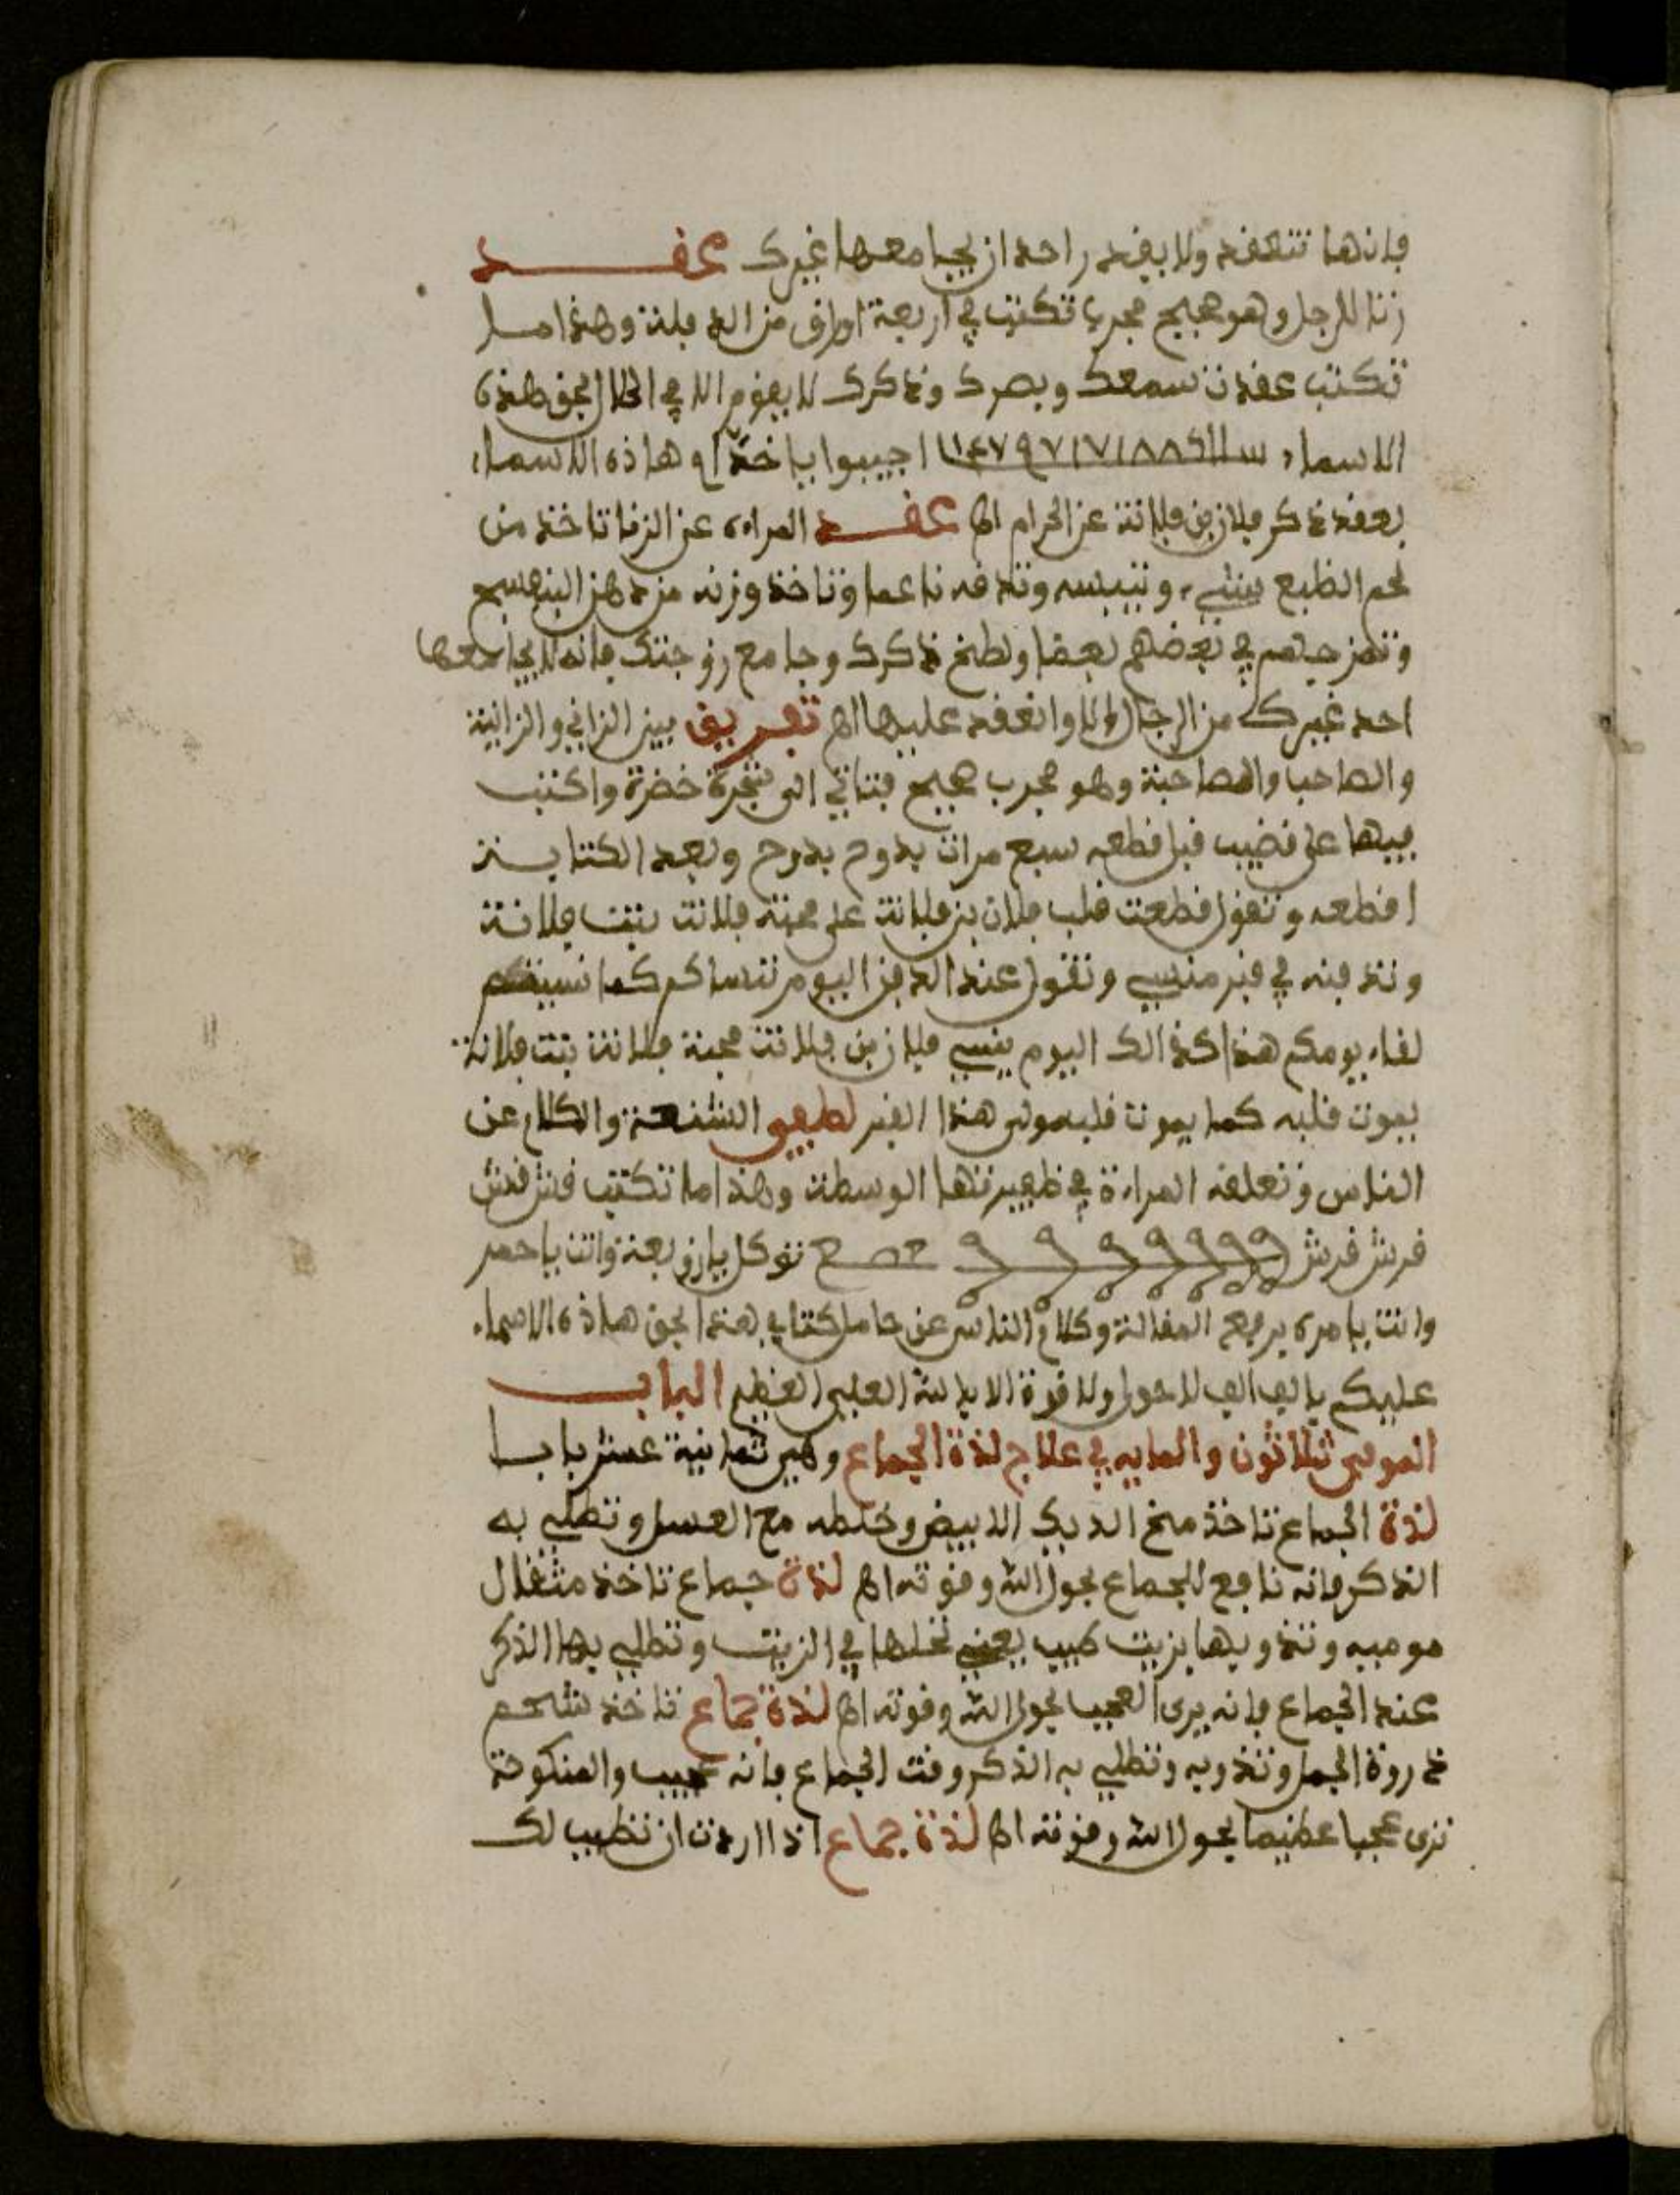 فانها تنعقد ولا يقدر احد ان يجامعها غيرك عقد
زنا للرجل وهو صحيح مجرب تكتب في اربعة اوراق من الدفلة وهذا ما
تكتب عقدت سمعك وبصرك وذكرك لا يقوم الا في الحلال بحق هذه
الاسماء اجيبوا يا خدام هاذه الاسماء
بعقد ذكر فلان بن فلانة عن الحرام اه عقد المراة عن الزنا تاخذ من
لحم الظبع شيء وتيبسه وتدقه ناعما وتاخذ وزنه من دهن البنفسج
وتمزجهم في بعضهم بعضا ولطخ ذكرك وجامع زوجتك فانه لا يجامعها
احد غيرك من الرجال الا وانعقد عليها اه تفريق بين الزاني والزانية
والصاحب والمصاحبة وهو مجرب صحيح فتاتي الى شجرة خضرة واكتب
فيها على قضيب قبل قطعه سبع مرات بدوح بدوح وبعد الكتابة
اقطعه وتقول قطعت قلب فلان بن فلانة على محبة فلانة بنت فلانة
وتدفنه في قبر منسي وتقول عند الدفن اليوم ننساكم كما نسيتم
لقاء يومكم هذا كذالك اليوم ينسي فلان بن فلانة محبة فلانة بنت فلانة
يموت قلبه كما يموت قلب مولى هذا القبر لطيفي الشنعة والكلام عن
الناس وتعلقه المراة في ظفيرتها الوسطة وهذا ما تكتب فش فش
فرش فرش توكل يا زوبعة وانت ياحمر
وانت يا مرة برفع المقالة وكلام الناس عن حامل كتابي هذا بحق هاذه الاسماء
عليكم بالف الف لا حول ولا قوة الا بالله العلي العظيم الباب
الموفى ثلاثون والمايه في علاج لذة الجماع وهي ثمانية عشر بابا
لذة الجماع تاخذ مخ الديك الابيض وخلطه مع العسل وتطلي به
الذكر فانه نافع للجماع بحول الله وقوته اه لذة جماع تاخذ مثقال
موميه وتذويها بزيت طيب يعني تحلها في الزيت وتطلي بها الذكر
عند الجماع فانه يرى العجب بحول الله وقوته اه لذة جماع تاخذ شحم
ذروة الجمل وتذوبه وتطلي به الذكر وقت الجماع فانه عجيب والمنكوحة
ترى عجبا عظيما بحول الله وقوته اه لذة جماع اذا اردت ان تطيب لك